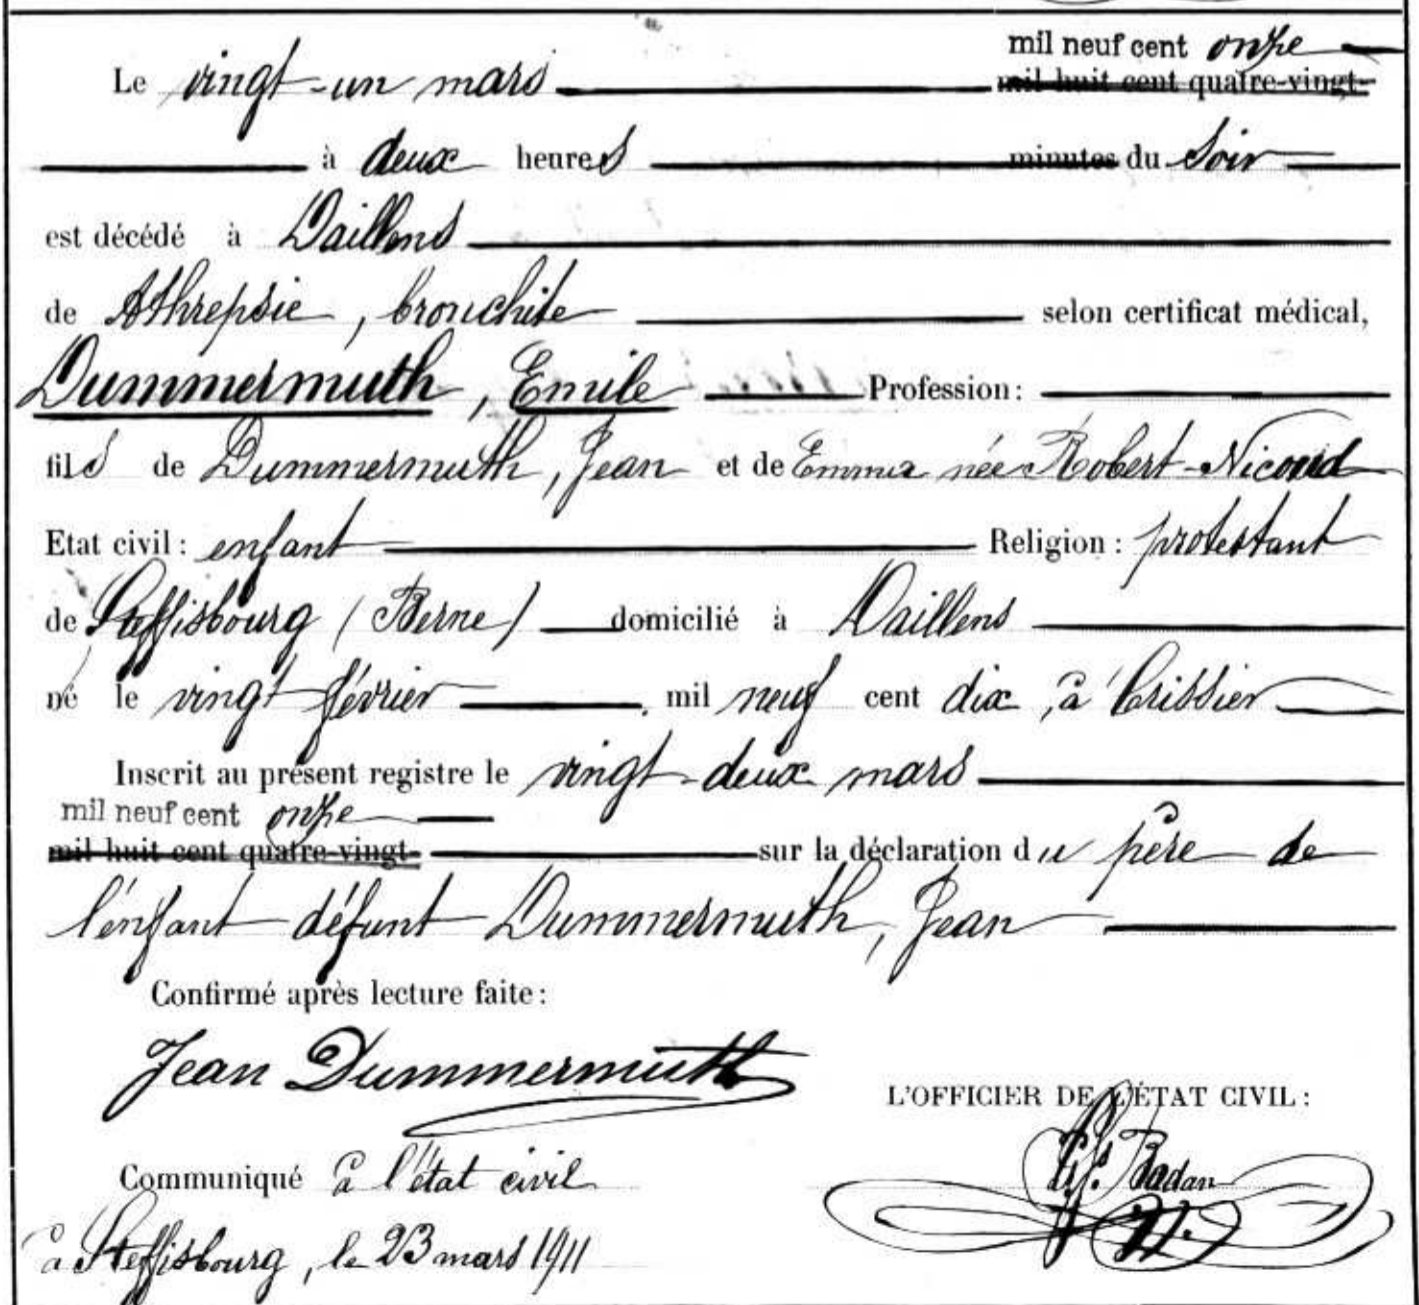 mil neuf cent onze
Le vingt-un mars mil huit cent quatre-vingt-
à deux heures minutes du soir
est décédé à Daillens
de Athrepsie, bronchite selon certificat médical,
Dummermuth, Emile Profession:
fils de Dummermuth, Jean et de Emma née Robert-Nicoud
Etat civil: enfant Religion: protestant
de Steffisbourg (Berne) domicilié à Daillens
né le vingt février mil neuf cent dix, à Crissier
Inscrit au présent registre le vingt-deux mars
mil neuf cent onze
mil huit cent quatre-vingt- sur la déclaration du père de
l'enfant défunt Dummermuth, Jean
Confirmé après lecture faite:
Jean Dummermuth
L'OFFICIER DE L'ÉTAT CIVIL:
Communiqué à l'état civil
Badan
à Steffisbourg, le 23 mars 1911